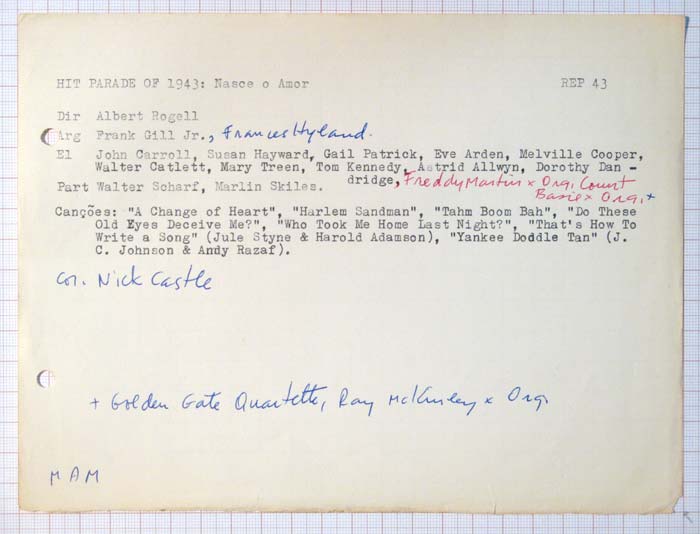 HIT PARADE OF 1943: Nasce o Amor REP 43
Dir Albert Rogell
Arg Frank Gill Jr., Frances Hyland.
El John Carroll, Susan Hayward, Gail Patrick, Eve Arden, Melville Cooper,
Walter Catlett, Mary Treen, Tom Kennedy, Astrid Allwyn, Dorothy Dan -
dridge, Freddy Martin x Orq. Count
Basie x Orq. +
Part Walter Scharf, Marlin Skiles.
Canções: "A Change of Heart", "Harlem Sandman", "Tahm Boom Bah", "Do These
Old Eyes Deceive Me?", "Who Took Me Home Last Night?", "That's How To
Write a Song" (Jule Styne & Harold Adamson), "Yankee Doddle Tan" (J.
C. Johnson & Andy Razaf).
Cor. Nick Castle
+ Golden Gate Quartette, Ray McKinley x Orq.
M A M